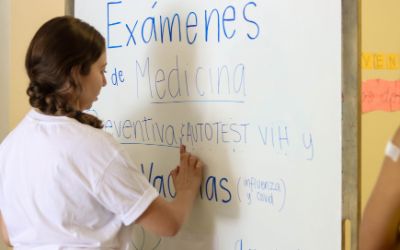 Exámenes
de Medicina
Preventiva, AUTOTEST VIH y
Vacunas (influenza
y covid)